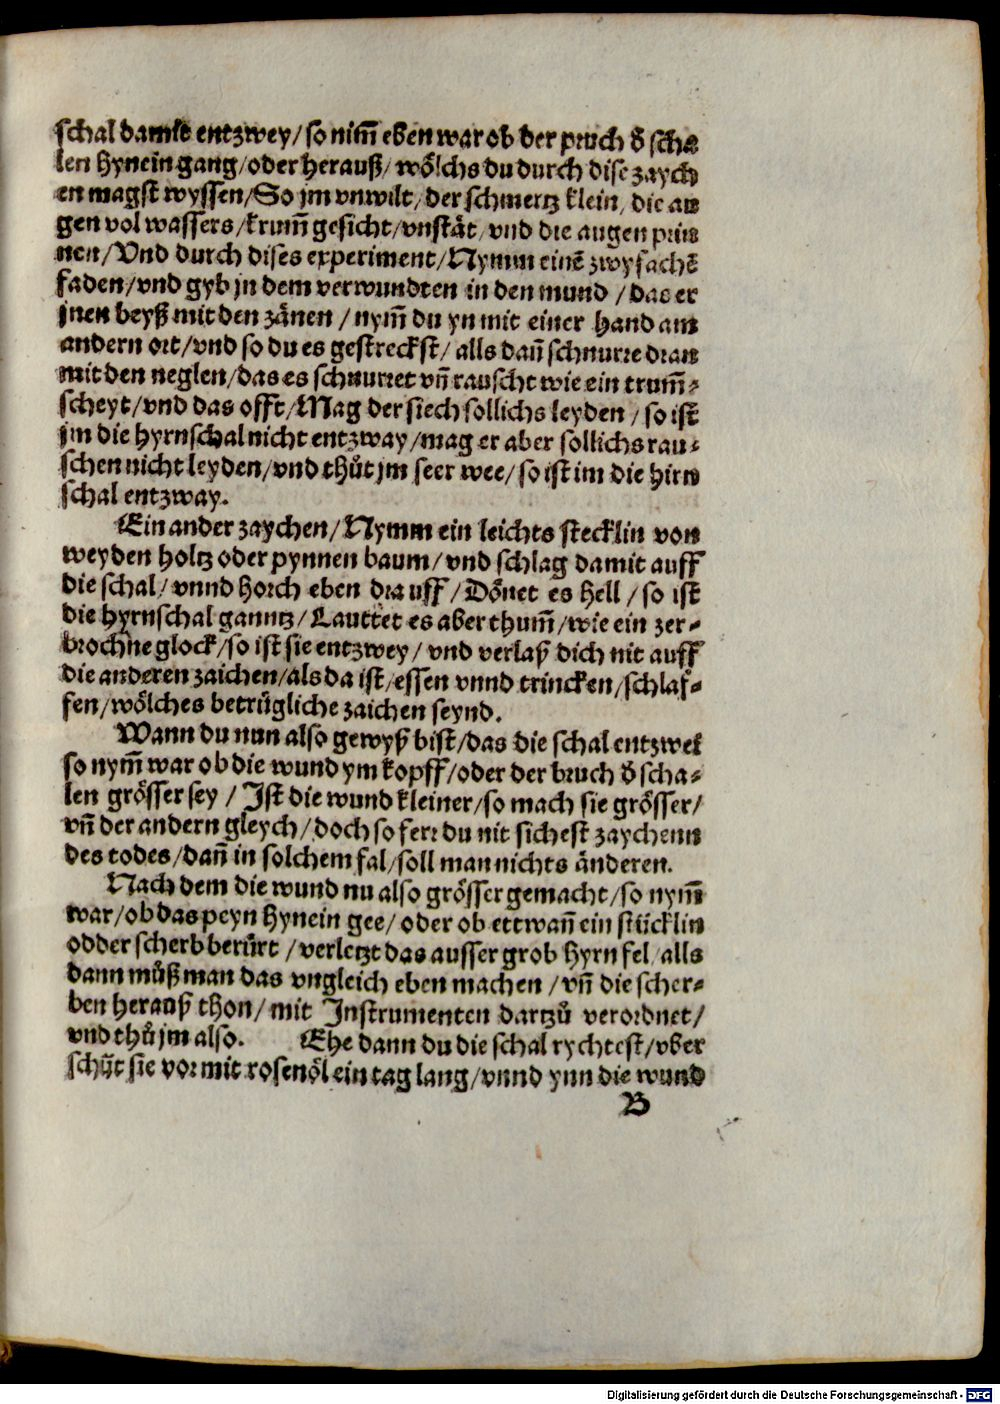 schal damit entzwey/so nim̄ eben war ob der pruch d̕ scha
len hynein gang/oder herauß/wo̊lchs du durch dise zaych
en magst wyssen/So jm vnwilt/der schmertz klein/die au
gen vol wassers/krum̄ gesicht/vnstät/vnd die augen prin
nen/Vnd durch dises experiment/Nymm einē zwyfachē
faden/vnd gyb jn dem verwundten in den mund/das er
jnen beyß mit den zänen/nym̄ du yn mit einer hand am
andern ort/vnd so du es gestreckst/alls dañ schnurre dran
mit den neglen/das es schnurret vñ rauscht wie ein trum̄⸗
scheyt/vnd das offt/Mag der siech sollichs leyden/so ist
jm die hyrnschal nicht entzway/mag er aber sollichs rau⸗
schen nicht leyden/vnd thůt jm seer wee/so ist im die hirn
schal entzway.
Ein ander zaychen/Nymm ein leichts stecklin von
weyden holtz oder pynnen baum/vnd schlag damit auff
die schal/vnnd horch eben drauff/Dönet es hell/so ist
die hyrnschal ganntz/Lauttet es aber thum̄/wie ein zer⸗
brochne glock/so ist sie entzwey/vnd verlaß dich nit auff
die anderen zaichen/als da ist/essen vnnd trincken/schlaf⸗
fen/wölches betrügliche zaichen seynd.
Wann du nun also gewyß bist/das die schal entzwei
so nym̄ war ob die wund ym kopff/oder der bruch d̕ scha⸗
len grösser sey/Ist die wund kleiner/so mach sie grösser/
vñ der andern gleych/doch so ferr du nit sichest zaychenn
des todes/dañ in solchem fal/soll man nichts änderen.
Nach dem die wund nu also grösser gemacht/so nym̄
war/ob das peyn hynein gee/oder ob ettwañ ein stücklin
odder scherb berürt/verletzt das ausser grob hyrn fel/alls
dann můß man das vngleich eben machen/vñ die scher⸗
ben herauß thon/mit Instrumenten dartzů verordnet/
vnd thů jm also. Ehe dann du die schal rychtest/vber
schüt sie vor mit rosenöl ein tag lang/vnnd ynn die wund
B
Digitalisierung gefördert durch die Deutsche Forschungsgemeinschaft - DFG